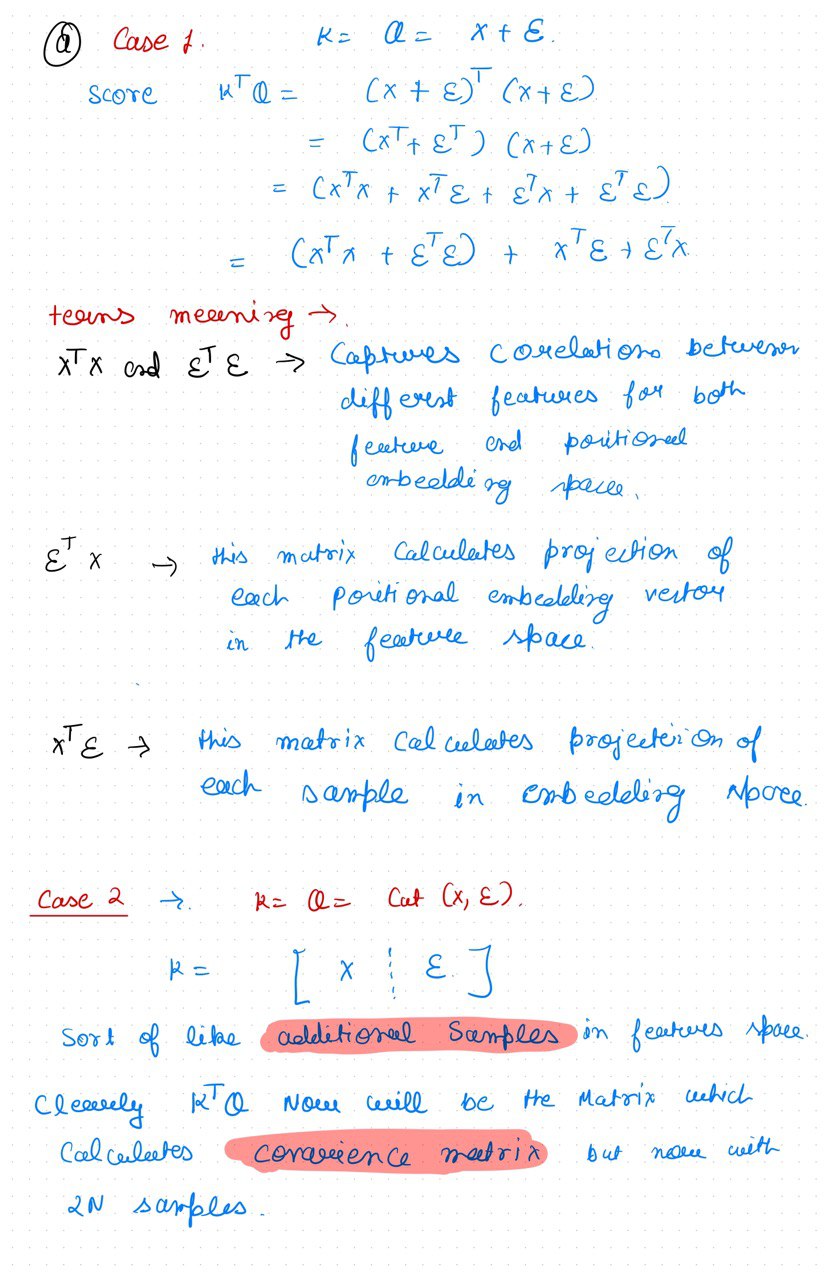 (a) Case 1. K = Q = x + ε.
Score KᵀQ = (x + ε)ᵀ (x + ε)
= (xᵀ + εᵀ) (x + ε)
= (xᵀx + xᵀε + εᵀx + εᵀε)
= (xᵀx + εᵀε) + xᵀε + εᵀx
terms meaning →.
xᵀx and εᵀε → Captures corelations between
different features for both
feature and positional
embedding space.
εᵀx → this matrix calculates projection of
each positional embedding vector
in the feature space.
xᵀε → this matrix calculates projection of
each sample in embedding space.
Case 2 →. K = Q = Cat (x, ε).
K = [ x ¦ ε ]
Sort of like additional samples in features space.
Clearly KᵀQ Now will be the Matrix which
Calculates covarience matrix but now with
2N samples.